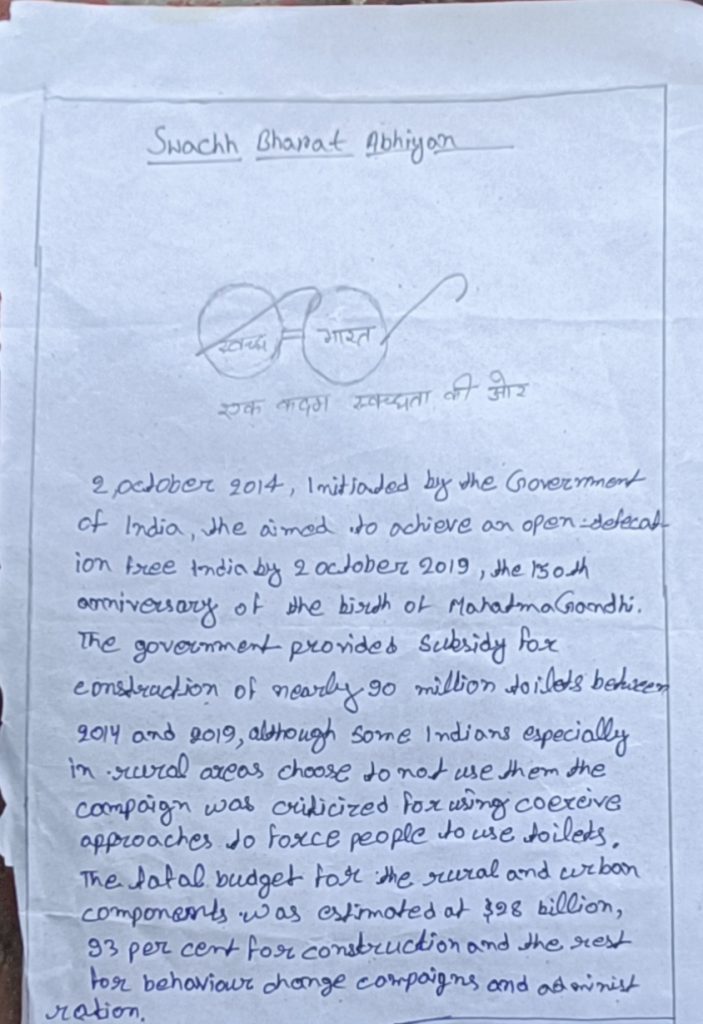 Swachh Bharat Abhiyan
स्वच्छ भारत
एक कदम स्वच्छता की ओर
2, october 2014, Initiaded by the Government
of India, the aimed to achieve an open-defecat
ion free India by 2 october 2019, the 150th
anniversary of the birth of Mahatma Gandhi.
The government provided subsidy for
construction of nearly 90 million toilets between
2014 and 2019, although some Indians especially
in rural areas choose to not use them the
campaign was criticized for using coercive
approaches to force people to use toilets.
The total budget for the rural and urban
components was estimated at $28 billion,
93 per cent for construction and the rest
for behaviour change campaigns and administ
ration.